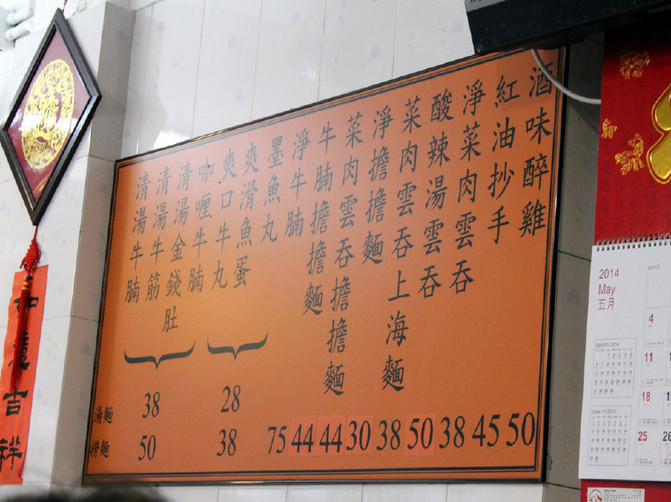 酒味醉雞
紅油抄手
淨菜肉雲吞
酸辣湯雲吞
菜肉雲吞上海麵
淨擔擔麵
菜肉雲吞擔擔麵
牛腩擔擔麵
淨牛腩
墨魚丸
爽滑魚蛋
爽口牛丸
咖喱牛腩
清湯金錢肚
清湯牛筋
清湯牛腩
湯麵 38 28
撈麵 50 38 75 44 44 30 38 50 38 45 50
如意吉祥
2014
May
五月
4
11
18
25